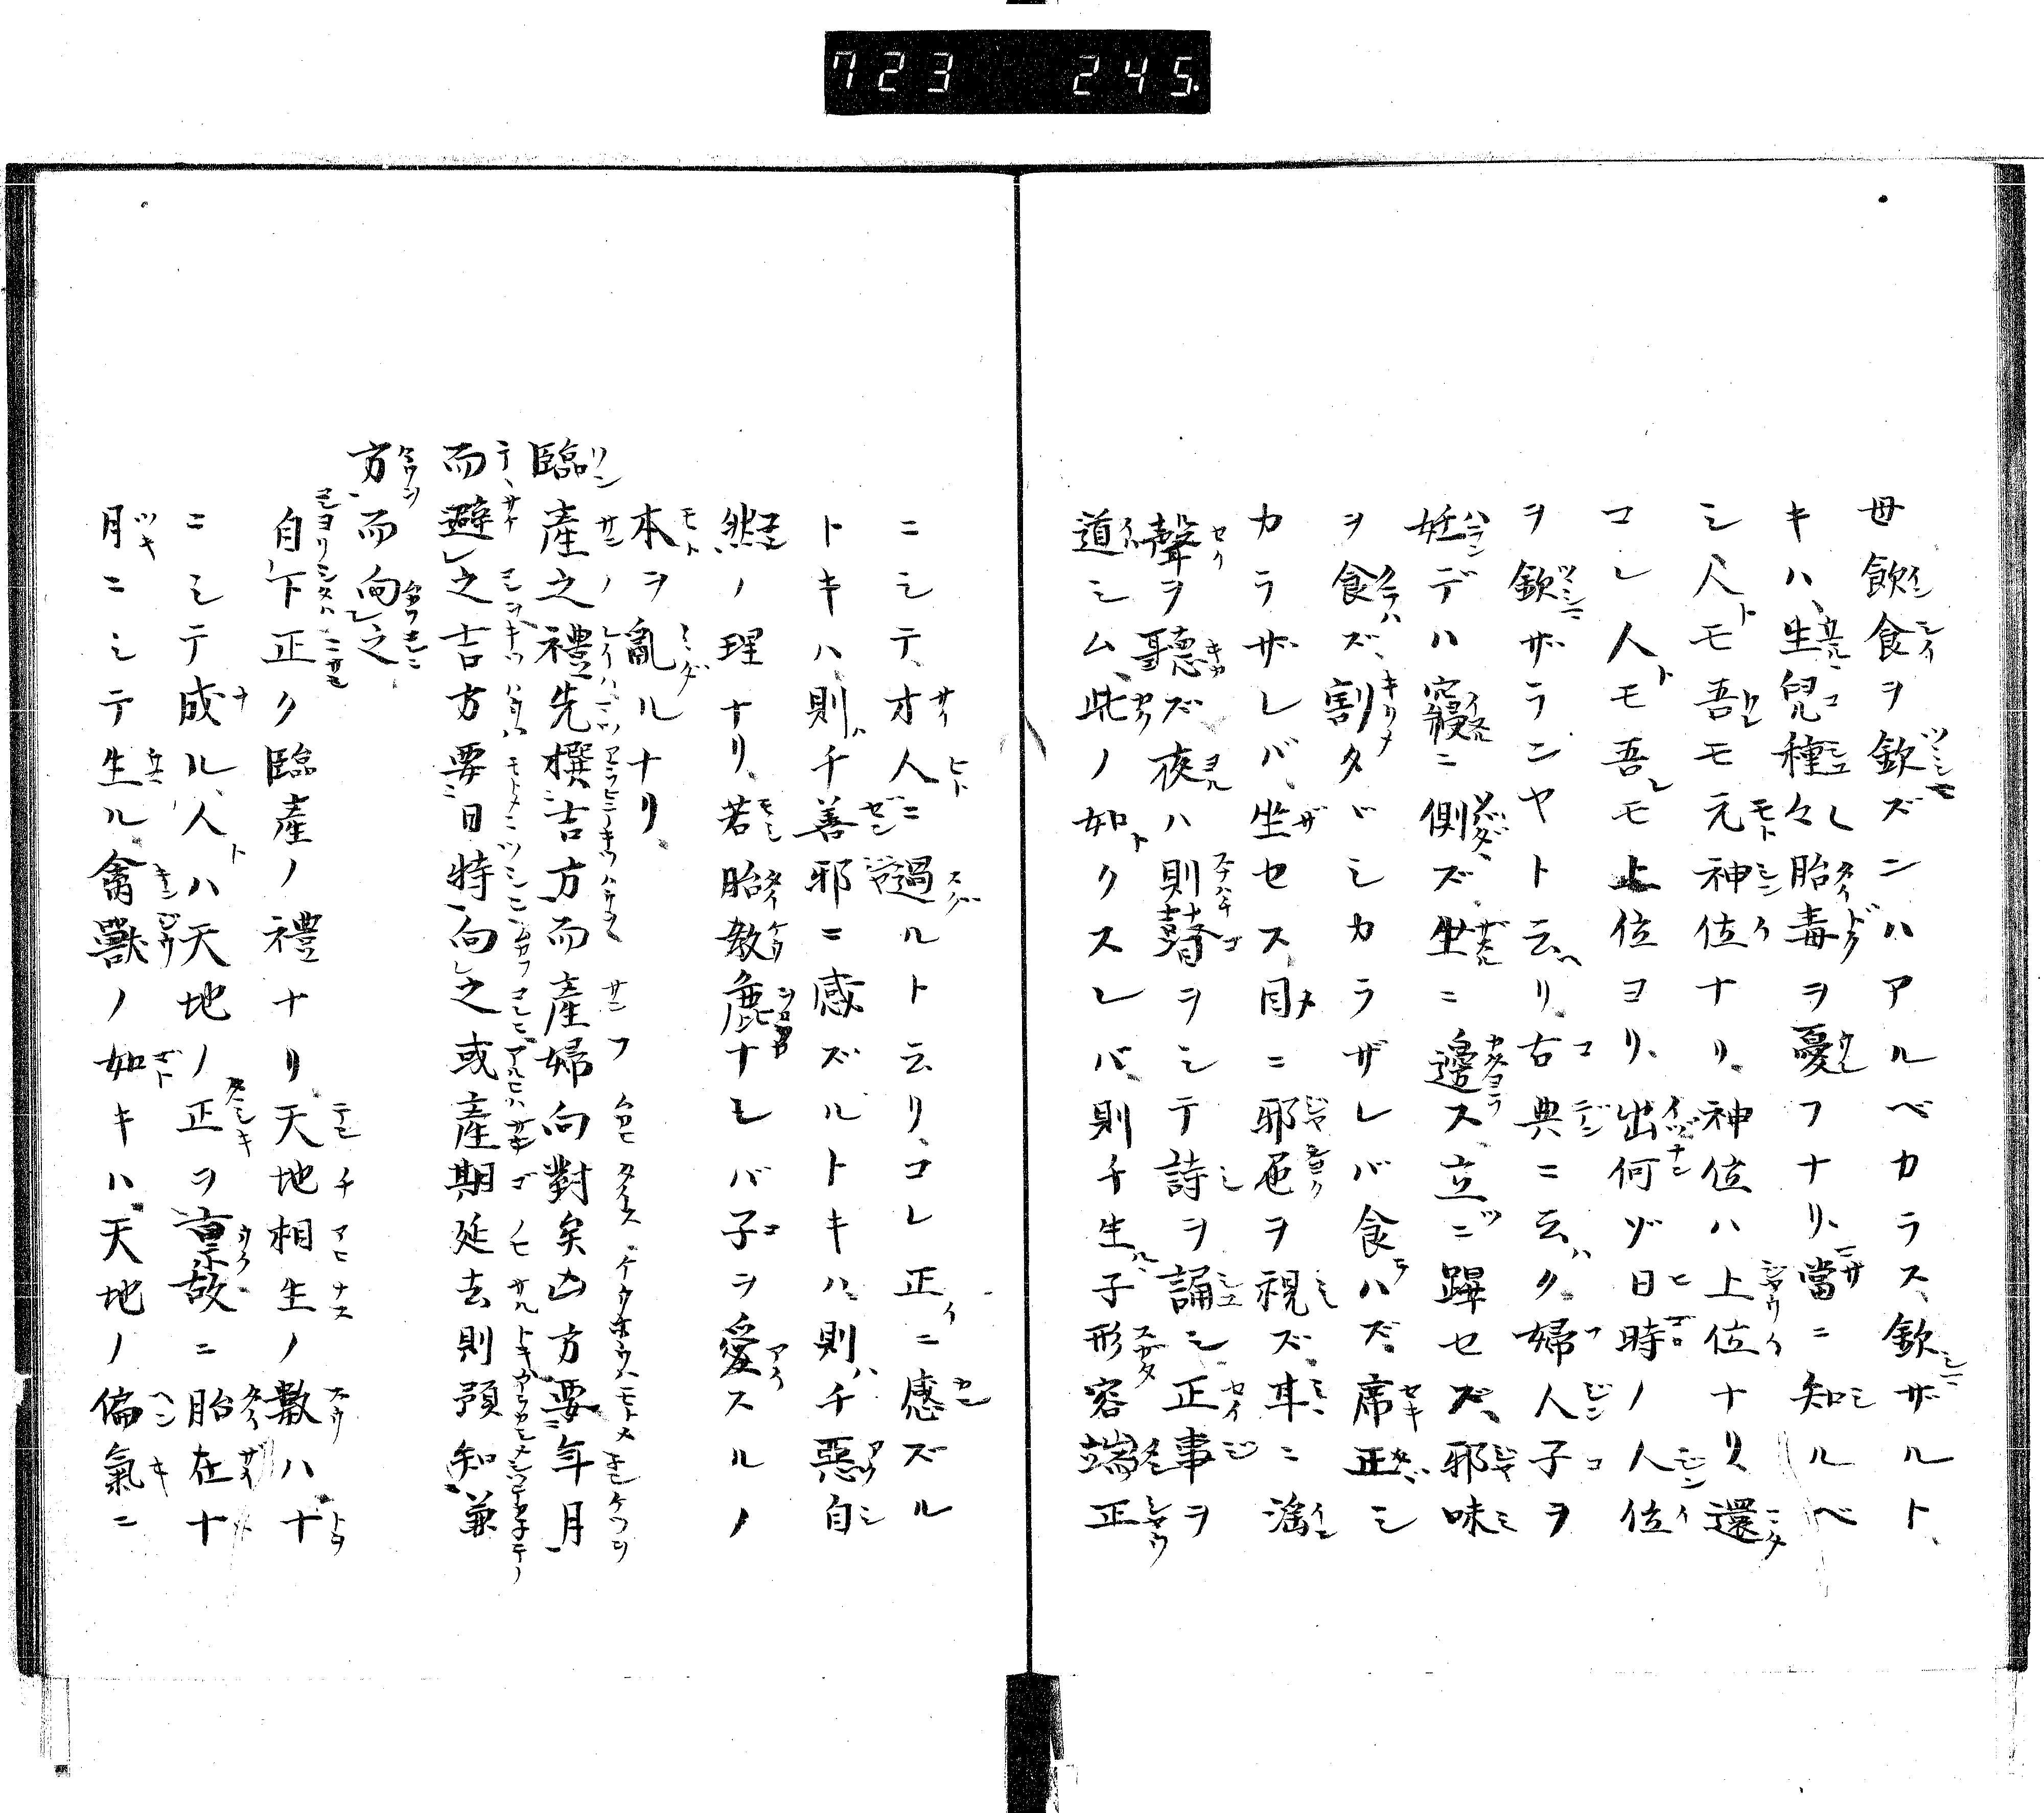 723 245.
母飲食ヲ欽ズンハアルベカラス、欽ザルト、
キハ、生兒種々胎毒ヲ憂フナリ、當ニ知ルベ
シ人モ吾モ元神位ナリ、神位ハ上位ナリ、還
コレ人モ吾モ上位ヨリ、出何ゾ日時ノ人位
ヲ欽ザランヤト云リ、古典ニ云ク、婦人子ヲ
妊デハ寢ニ側ズ、坐ニ邊ス、立ニ蹕セズ、邪味
ヲ食ズ、割タヾシカラザレバ食ハズ、席正シ
カラザレバ、坐セス、目ニ邪色ヲ視ズ、耳ニ滛
聲ヲ聽ズ、夜ハ則瞽ヲシテ詩ヲ誦シ正事ヲ
道シム、此ノ如クスレバ、則チ生子形容端正
ニシテ、才人ニ過ルト云リ、コレ正ニ感ズル
トキハ、則チ善邪ニ感ズルトキハ、則チ惡自
然ノ理ナリ、若胎教麁ナレバ子ヲ愛スルノ
本ヲ亂ルナリ、
臨產之禮先撰吉方而產婦向對矣凶方要年月
而避之吉方要日特向之或產期延去則預知兼
方而向之
自下正ク臨產ノ禮ナリ、天地相生ノ數ハ、十
ニシテ成ル、人ハ天地ノ正ヲ禀故ニ胎在十
月ニシテ生ル、禽獸ノ如キハ、天地ノ偏氣ニ